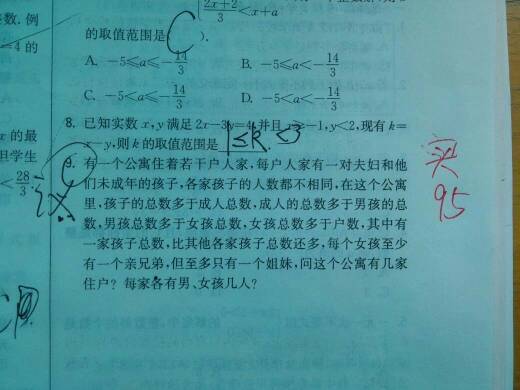 整数. 例
{2x+2/3<x+a
=4 的
的取值范围是( C ).
A. -5≤a≤-14/3 B. -5≤a<-14/3
C. -5<a≤-14/3 D. -5<a<-14/3
8. 已知实数 x,y 满足 2x-3y=4,并且 x≥-1,y<2,现有 k=
x 的最
x-y,则 k 的取值范围是 1≤k<3
但学生
9. 有一个公寓住着若干户人家,每户人家有一对夫妇和他
<28/3.
们未成年的孩子,各家孩子的人数都不相同,在这个公寓
里,孩子的总数多于成人总数,成人的总数多于男孩的总
数,男孩总数多于女孩总数,女孩总数多于户数,其中有
一家孩子总数,比其他各家孩子总数还多,每个女孩至少
有一个亲兄弟,但至多只有一个姐妹,问这个公寓有几家
住户? 每家各有男、女孩几人?
95